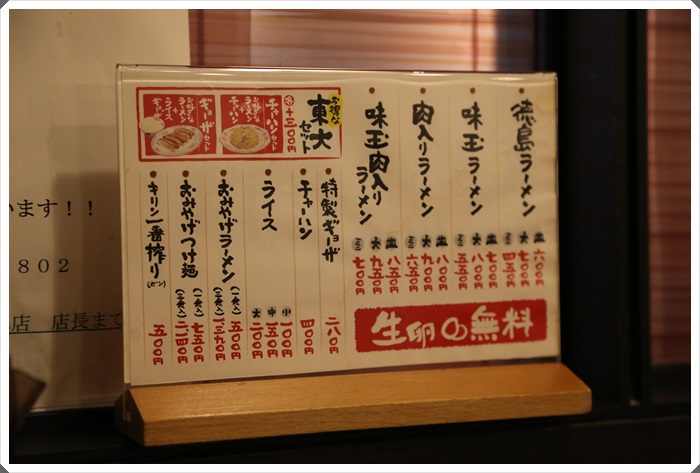 徳島ラーメン
並 六〇〇円
大 七〇〇円
ミニ 四五〇円
味玉ラーメン
並 七〇〇円
大 八〇〇円
ミニ 五五〇円
肉入りラーメン
並 八〇〇円
大 九〇〇円
ミニ 六五〇円
味玉肉入りラーメン
並 八五〇円
大 九五〇円
ミニ 七〇〇円
生卵の無料
お得な
東大セット
各+三〇〇円
チャーハンセット
お好きなラーメン
+
チャーハン
ギョーザセット
お好きなラーメン
+
ライス
+
ギョーザ
特製ギョーザ 二八〇円
チャーハン 四〇〇円
ライス
小 一〇〇円
中 一五〇円
大 二〇〇円
おみやげラーメン
(一食入) 五〇〇円
(三食入) 一三九〇円
おみやげつけ麺
(一食入) 七五〇円
(三食入) 二一四〇円
キリン一番搾り(ビン) 五〇〇円
います!!
802
店 店長まで